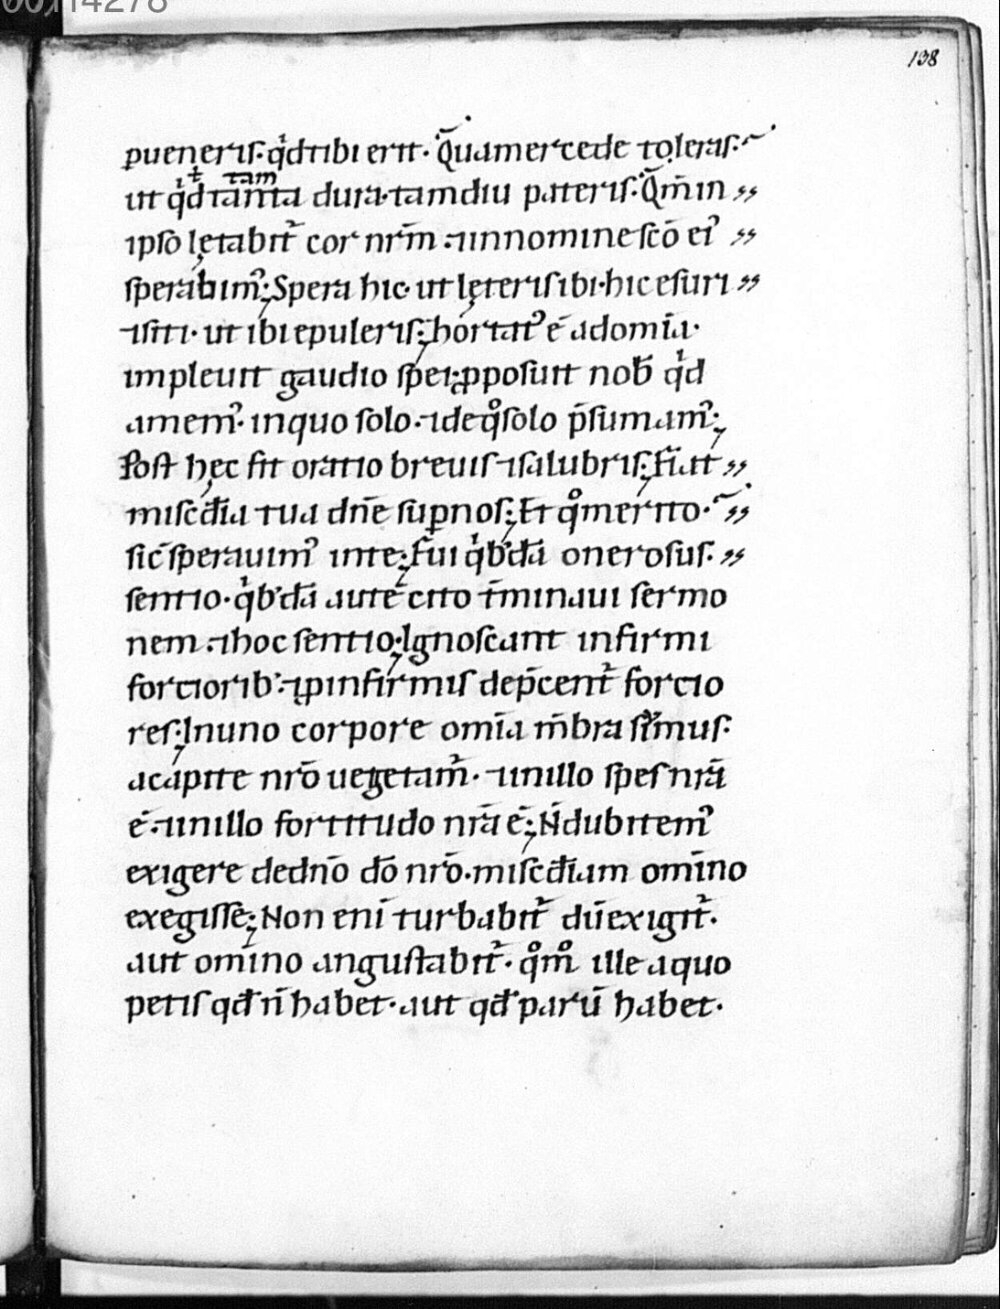 00114278
138
pueneris. qͥd tibi erit. Quā mercede toleras.
ut qͥd tanta tam dura. tamdiu pateris. Qm̄ in
ipso lętabit᷑ cor nrm̄. ⁊ in nomine sc̄o eiꝰ
sperabimꝰ; Spera hic. ut lęteris ibi. hic esuri
⁊ siti. ut ibi epuleris; hortatꝰ ē ad omīa.
impleuit gaudio spei; pposuit nob̄ qͥd
amemꝰ. in quo solo. ⁊ de qͦ solo p̄sumamꝰ;
Post hęc fit oratio breuis ⁊ salubris; Fiat
misc̄đia tua dn̄e sup nos; Et qͦ merito.
sic̄ sperauimꝰ in te; Fui qͥbꝰdā onerosus.
sentio. qͥbꝰdā autē cito t̄minaui sermo
nem. ⁊ hoc sentio; Ignoscant infirmi
fortioribꝰ. ⁊ p infirmis dep̄cent᷑ fortio
res; In uno corpore omīa m̄bra sumus.
a capite nr̄o uegetam᷑. ⁊ in illo spes nr̄a
ē. ⁊ in illo fortitudo nr̄a ē; N̄ dubitemꝰ
exigere de dn̄o dō nr̄o. misc̄điam omīno
exegisse; Non enī turbabit᷑ dū exigit᷑.
aut omīno angustabit᷑. qͦm ille a quo
petis qđ n̄ habet. aut qđ parū habet.